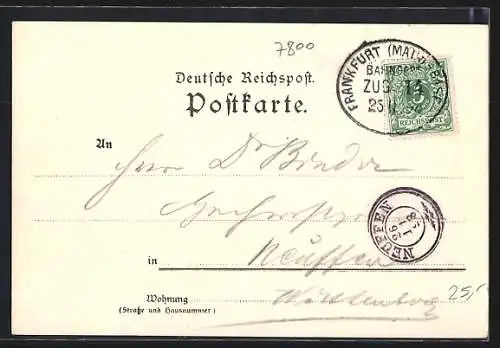 7800
FRANKFURT (MAIN)-BASEL
BAHNPOST
ZUG 14
25
5
REICHSPOST
Deutsche Reichspost.
Postkarte.
An
Herrn Dr Binder
NEUFFEN
in Neuffen
Wohnung
(Straße und Hausnummer)
Württemberg
25,-